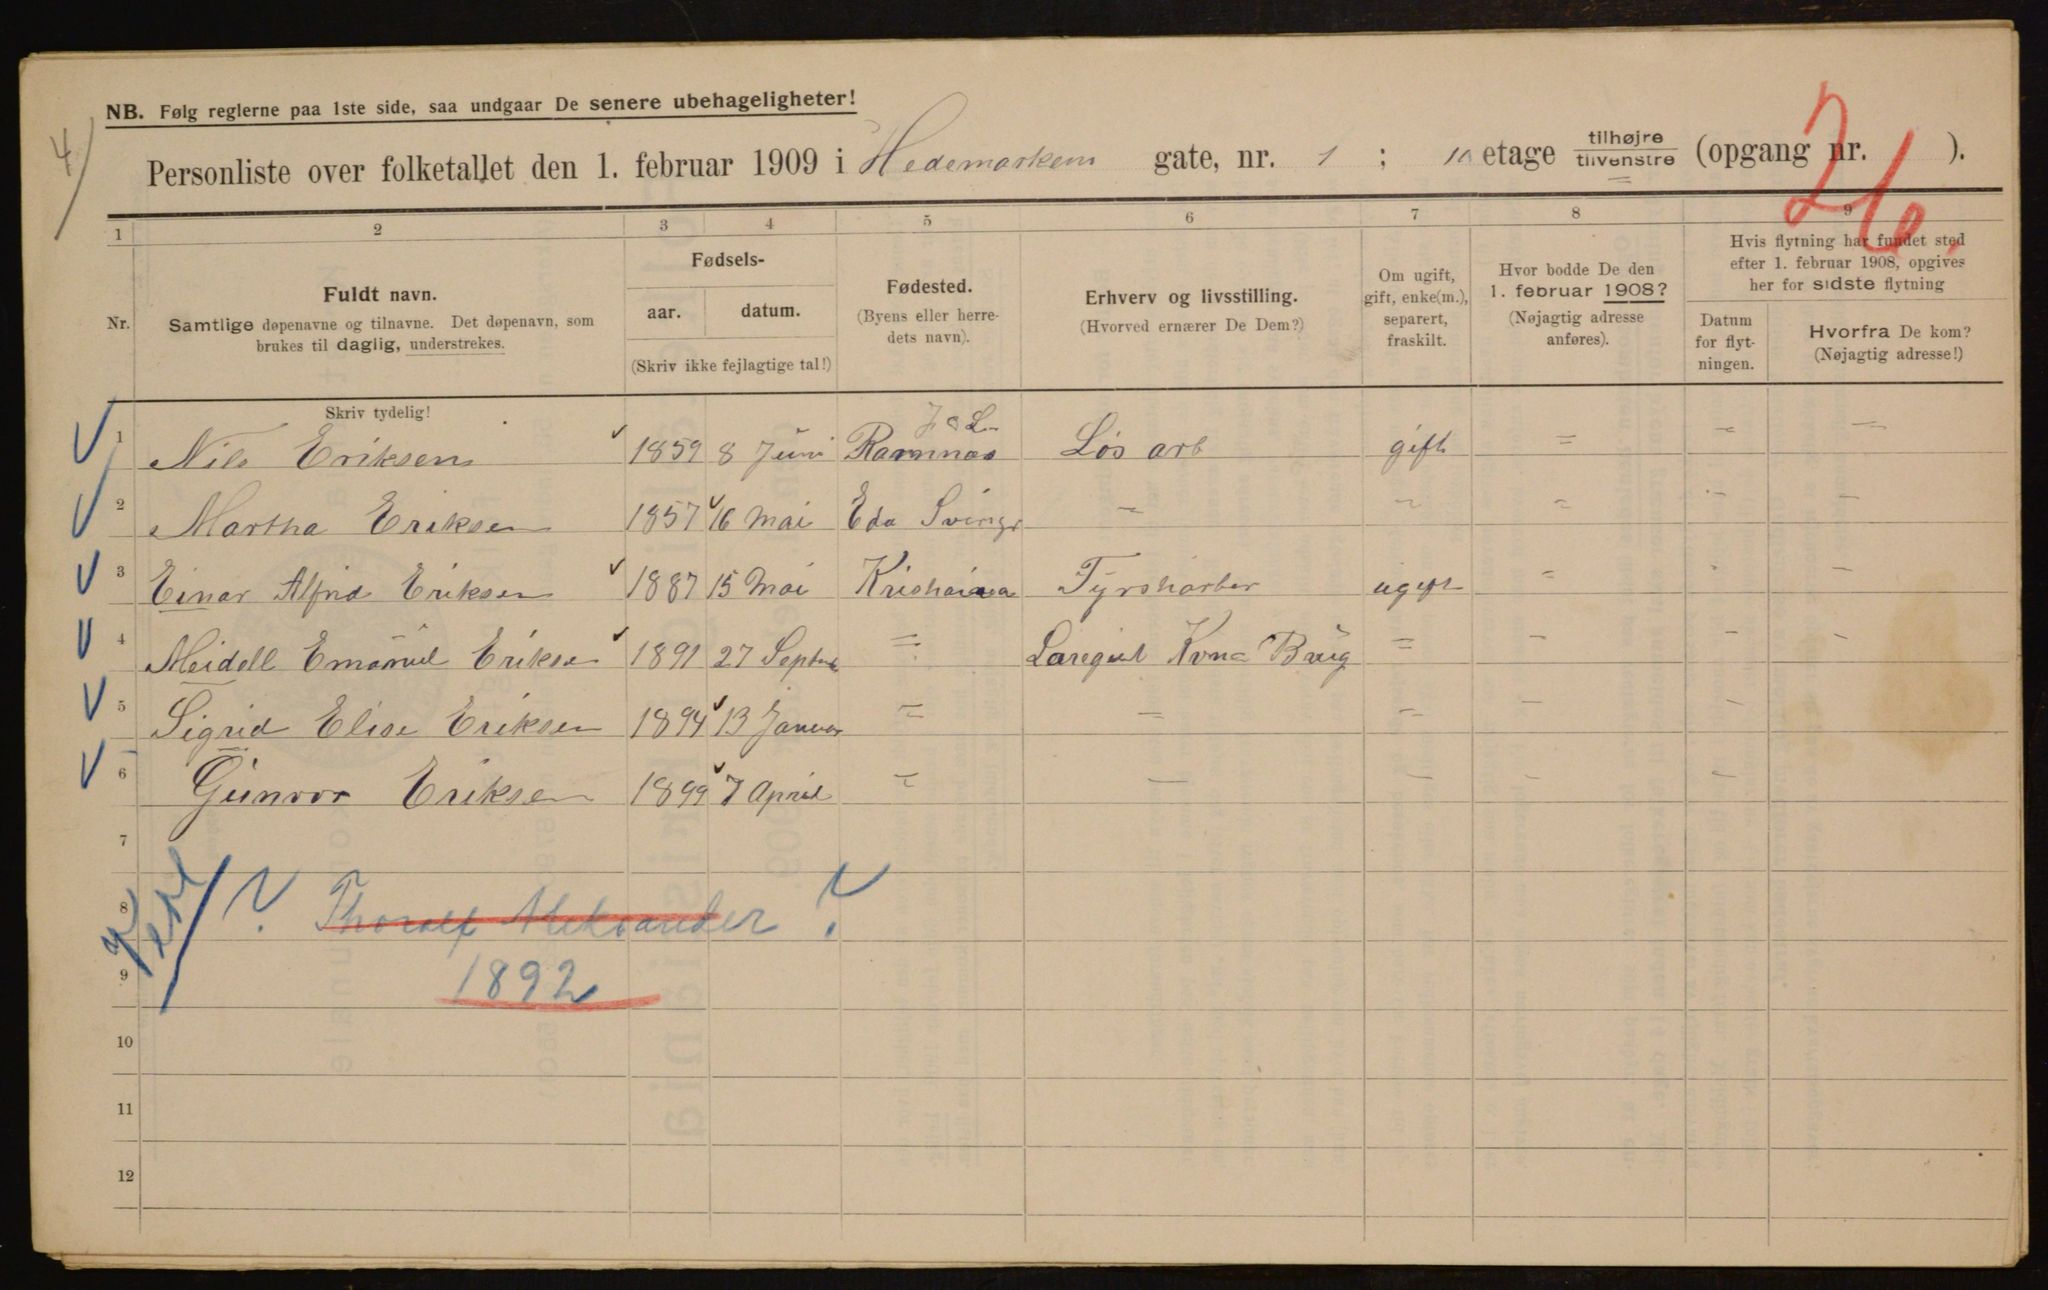 NB. Følg reglerne paa 1ste side, saa undgaar De senere ubehageligheter!
4/
Personliste over folketallet den 1. februar 1909 i Hedemarkens gate, nr. 1 ; etage tilhøjre tilvenstre (opgang nr. ).
26.
1 2 3 4 5 6 7 8 9
Nr.
Fuldt navn.
Samtlige døpenavne og tilnavne. Det døpenavn, som
brukes til daglig, understrekes.
Fødsels-
aar. datum.
(Skriv ikke fejlagtige tal!)
Fødested.
(Byens eller herre-
dets navn).
Erhverv og livsstilling.
(Hvorved ernærer De Dem?)
Om ugift,
gift, enke(m.),
separert,
fraskilt.
Hvor bodde De den
1. februar 1908?
(Nøjagtig adresse
anføres).
Hvis flytning har fundet sted
efter 1. februar 1908, opgives
her for sidste flytning
Datum
for flyt-
ningen.
Hvorfra De kom?
(Nøjagtig adresse!)
Skriv tydelig!
1 Nils Eriksen 1859 8 Juni Ramnas Løs arb gift = – –
2 Martha Eriksen 1857 16 Mai Eda – – = – –
3 Einar Alfrid Eriksen 1887 15 Mai Kristiania ugift = – –
4 Meidell Emanuel Eriksen 1891 27 Septbr = = – – –
5 Sigrid Elise Eriksen 1894 13 Januar = – – – –
6 Gunvor Eriksen 1899 7 April – – – – –
7
8 ? Thoralf Aleksander ?
9 1892
10
11
12